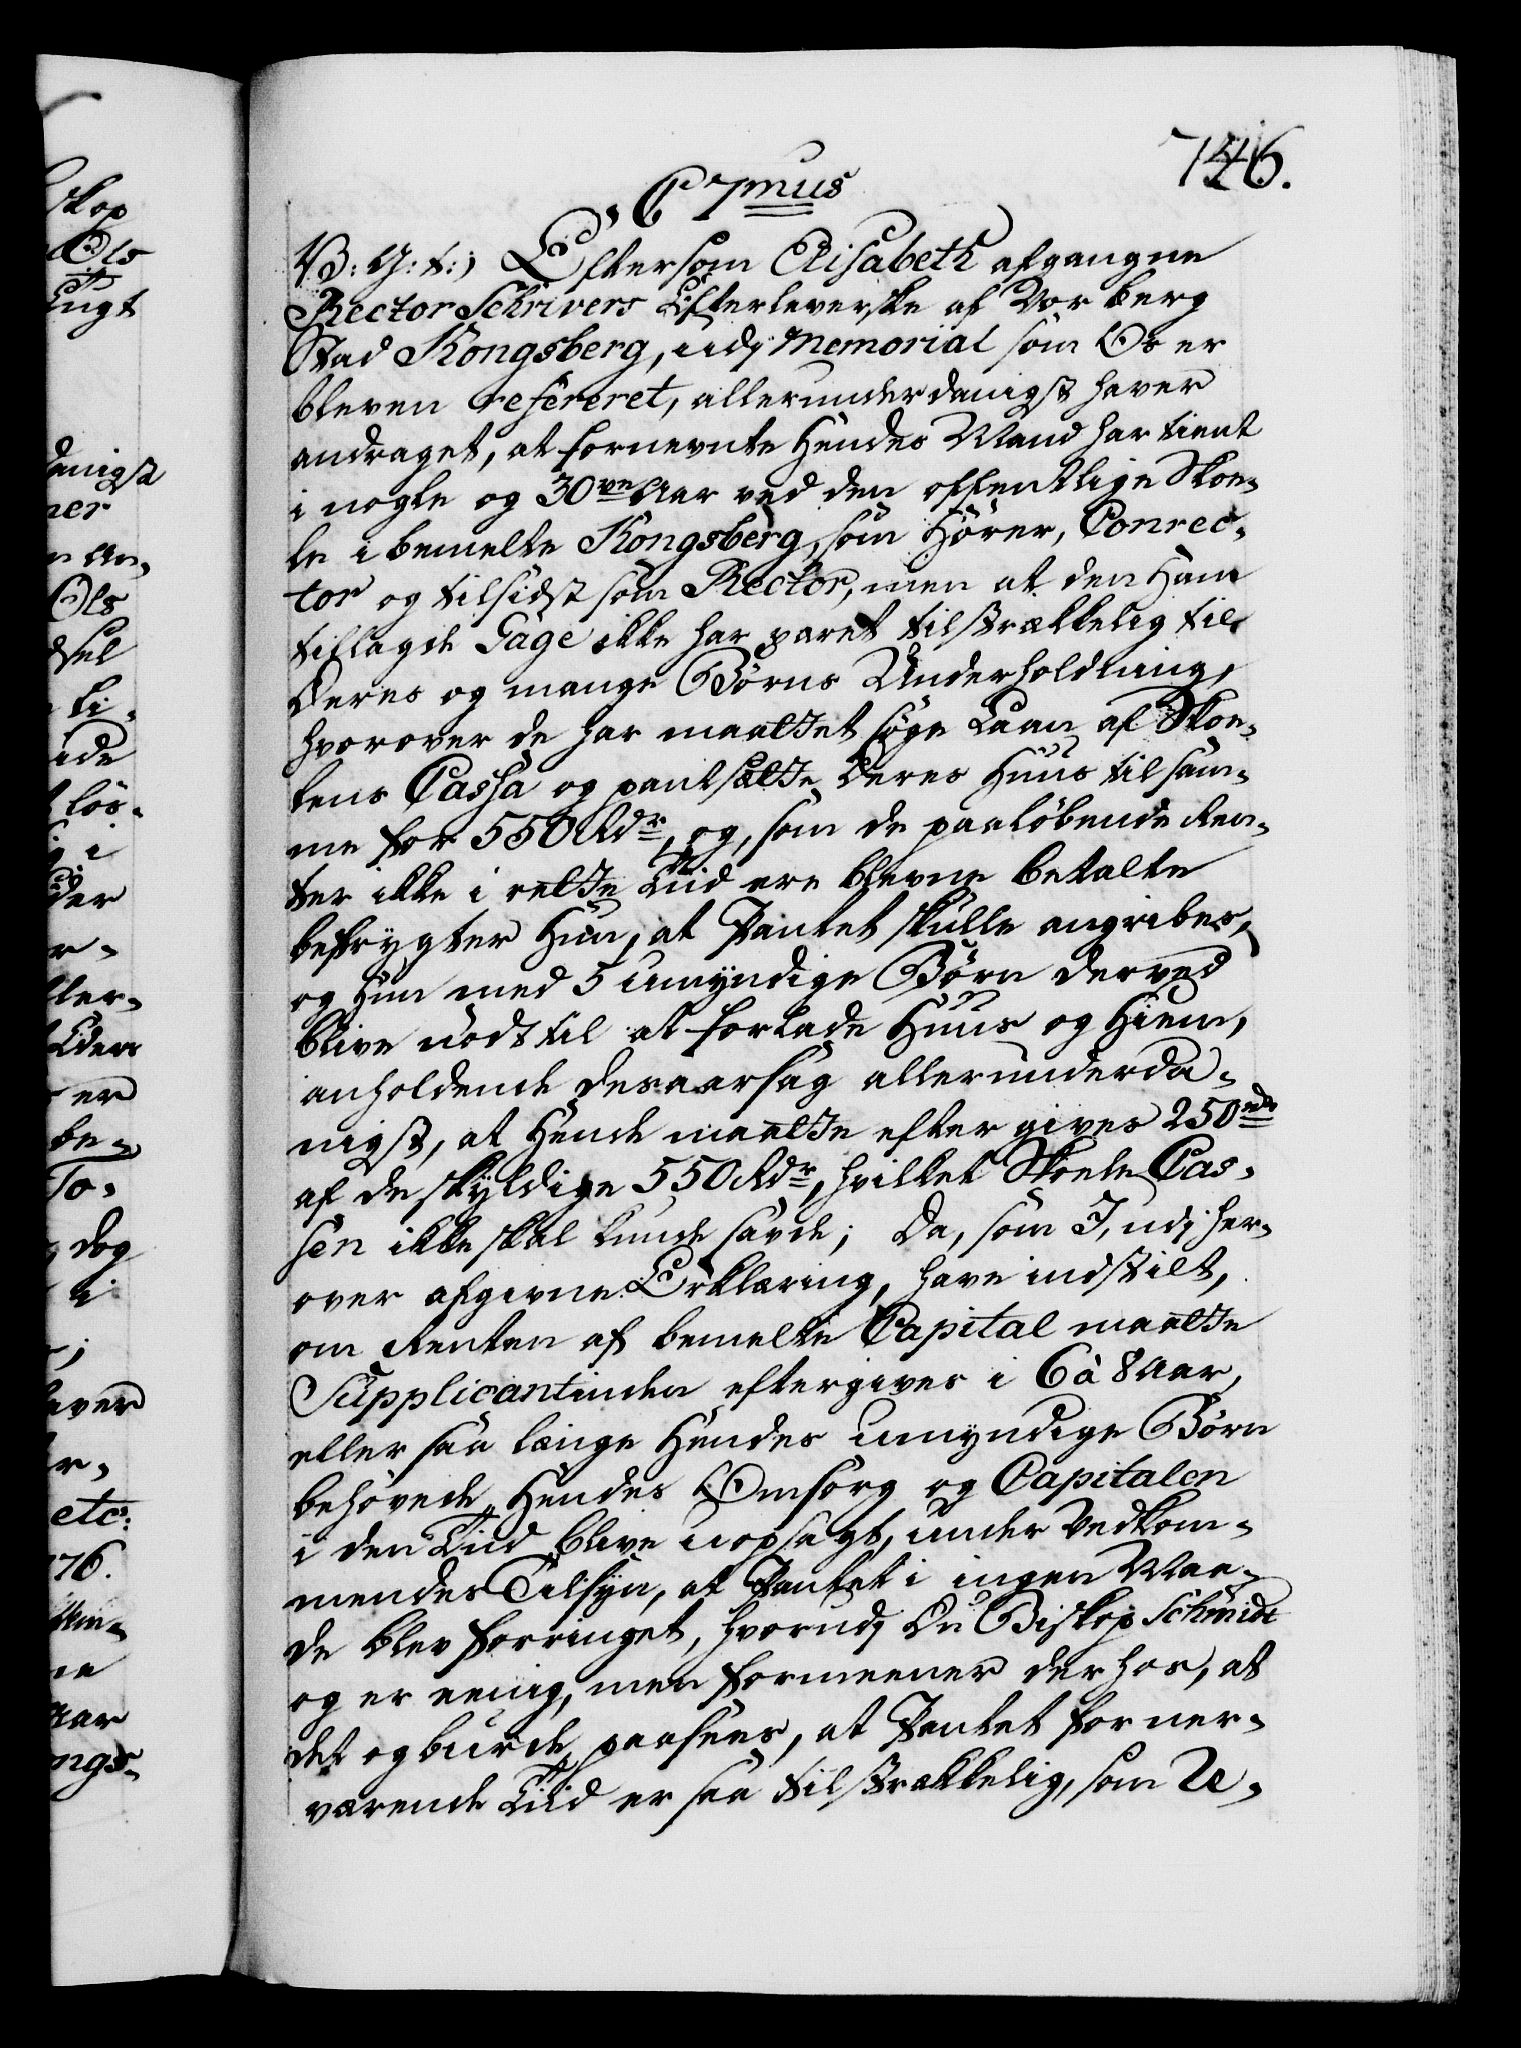 746.
C 7mus
V: G: t:) Eftersom Elisabeth afgangne
Rector Schrivers Efterleverske af Vor berg
Stad Kongsberg, udj Memorial som Os er
bleven refereret, allerunderdanigst haver
andraget, at fornevnte Hendes Mand har tient
i nogle og 30ve Aar ved den offentlige Skoe-
le i bemelte Kongsberg, som Hører, Conrec-
tor og tilsidst som Rector, men at den Ham
tillagde Gage ikke har været tilstrækkelig til
Deres og mange Børns Underholdning,
hvorover de har maattet søge Laan af Skoe-
lens Cassa og pantsatte Deres Huus til sam-
me for 550 Rdr, og, som de paaløbende Ren-
ter ikke i rette Tiid ere blevne betalte
befrygter Hun, at Pantet skulle angribes,
og Hun med 5 umyndige Børn derved
blive nødt til at forlade Huus og Hiem,
anholdende desaarsag allerunderda-
nigst, at Hende maatte eftergives 250 rdr
af de skyldige 550 Rdr, hvilket Skoele Cas-
sen ikke skal kunde savde; Da, som I, udj her-
over afgivne Erklæring, have indstilt,
om Renten af bemelte Capital maatte
Supplicantinden eftergives i 6 à 8 Aar,
eller saa længe Hendes umyndige Børn
behøvede Hendes Omsorg og Capitalen
i den Tiid blive uopsagt, under Vedkom-
mendes Tilsyn, at Pantet i ingen Maa-
de blev forringet, hvorudj Du Biskop Schmidt
og er eenig, men formeener derhos, at
det og burde paasees, at Pantet for nær-
værende Tiid er saa tilstrækkelig, som Ve-